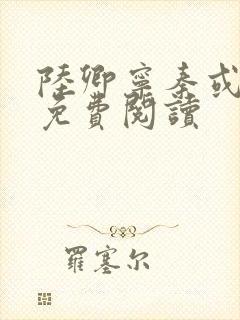 陸卿寧秦或
免費閱讀
羅塞尔